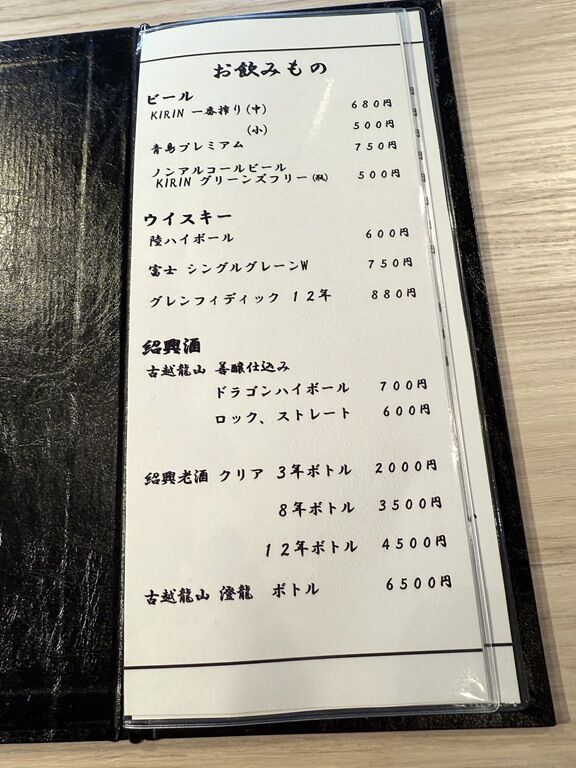 お飲みもの
ビール
KIRIN 一番搾り(中) 680円
(小) 500円
青島プレミアム 750円
ノンアルコールビール
KIRIN グリーンズフリー(瓶) 500円
ウイスキー
陸ハイボール 600円
富士 シングルグレーンW 750円
グレンフィディック 12年 880円
紹興酒
古越龍山 善醸仕込み
ドラゴンハイボール 700円
ロック、ストレート 600円
紹興老酒 クリア 3年ボトル 2000円
8年ボトル 3500円
12年ボトル 4500円
古越龍山 澄龍 ボトル 6500円